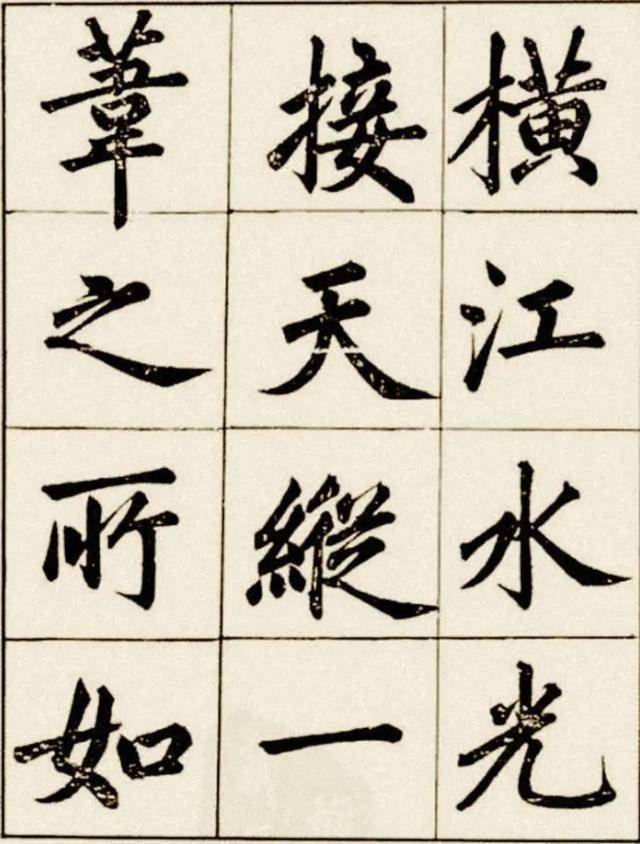 橫江水光
接天縱一
葦之所如